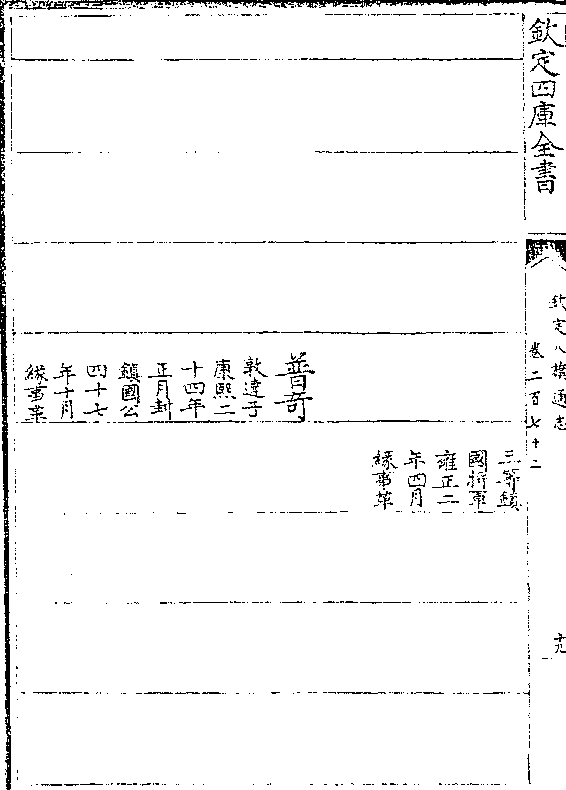 欽定四庫全書
欽定八旗通志
卷二百七十二
十九
三等鎮
國將軍
雍正二
年四月
緣事革
普奇
敦達子
康熙二
十四年
正月封
鎮國公
四十七
年十月
緣事革